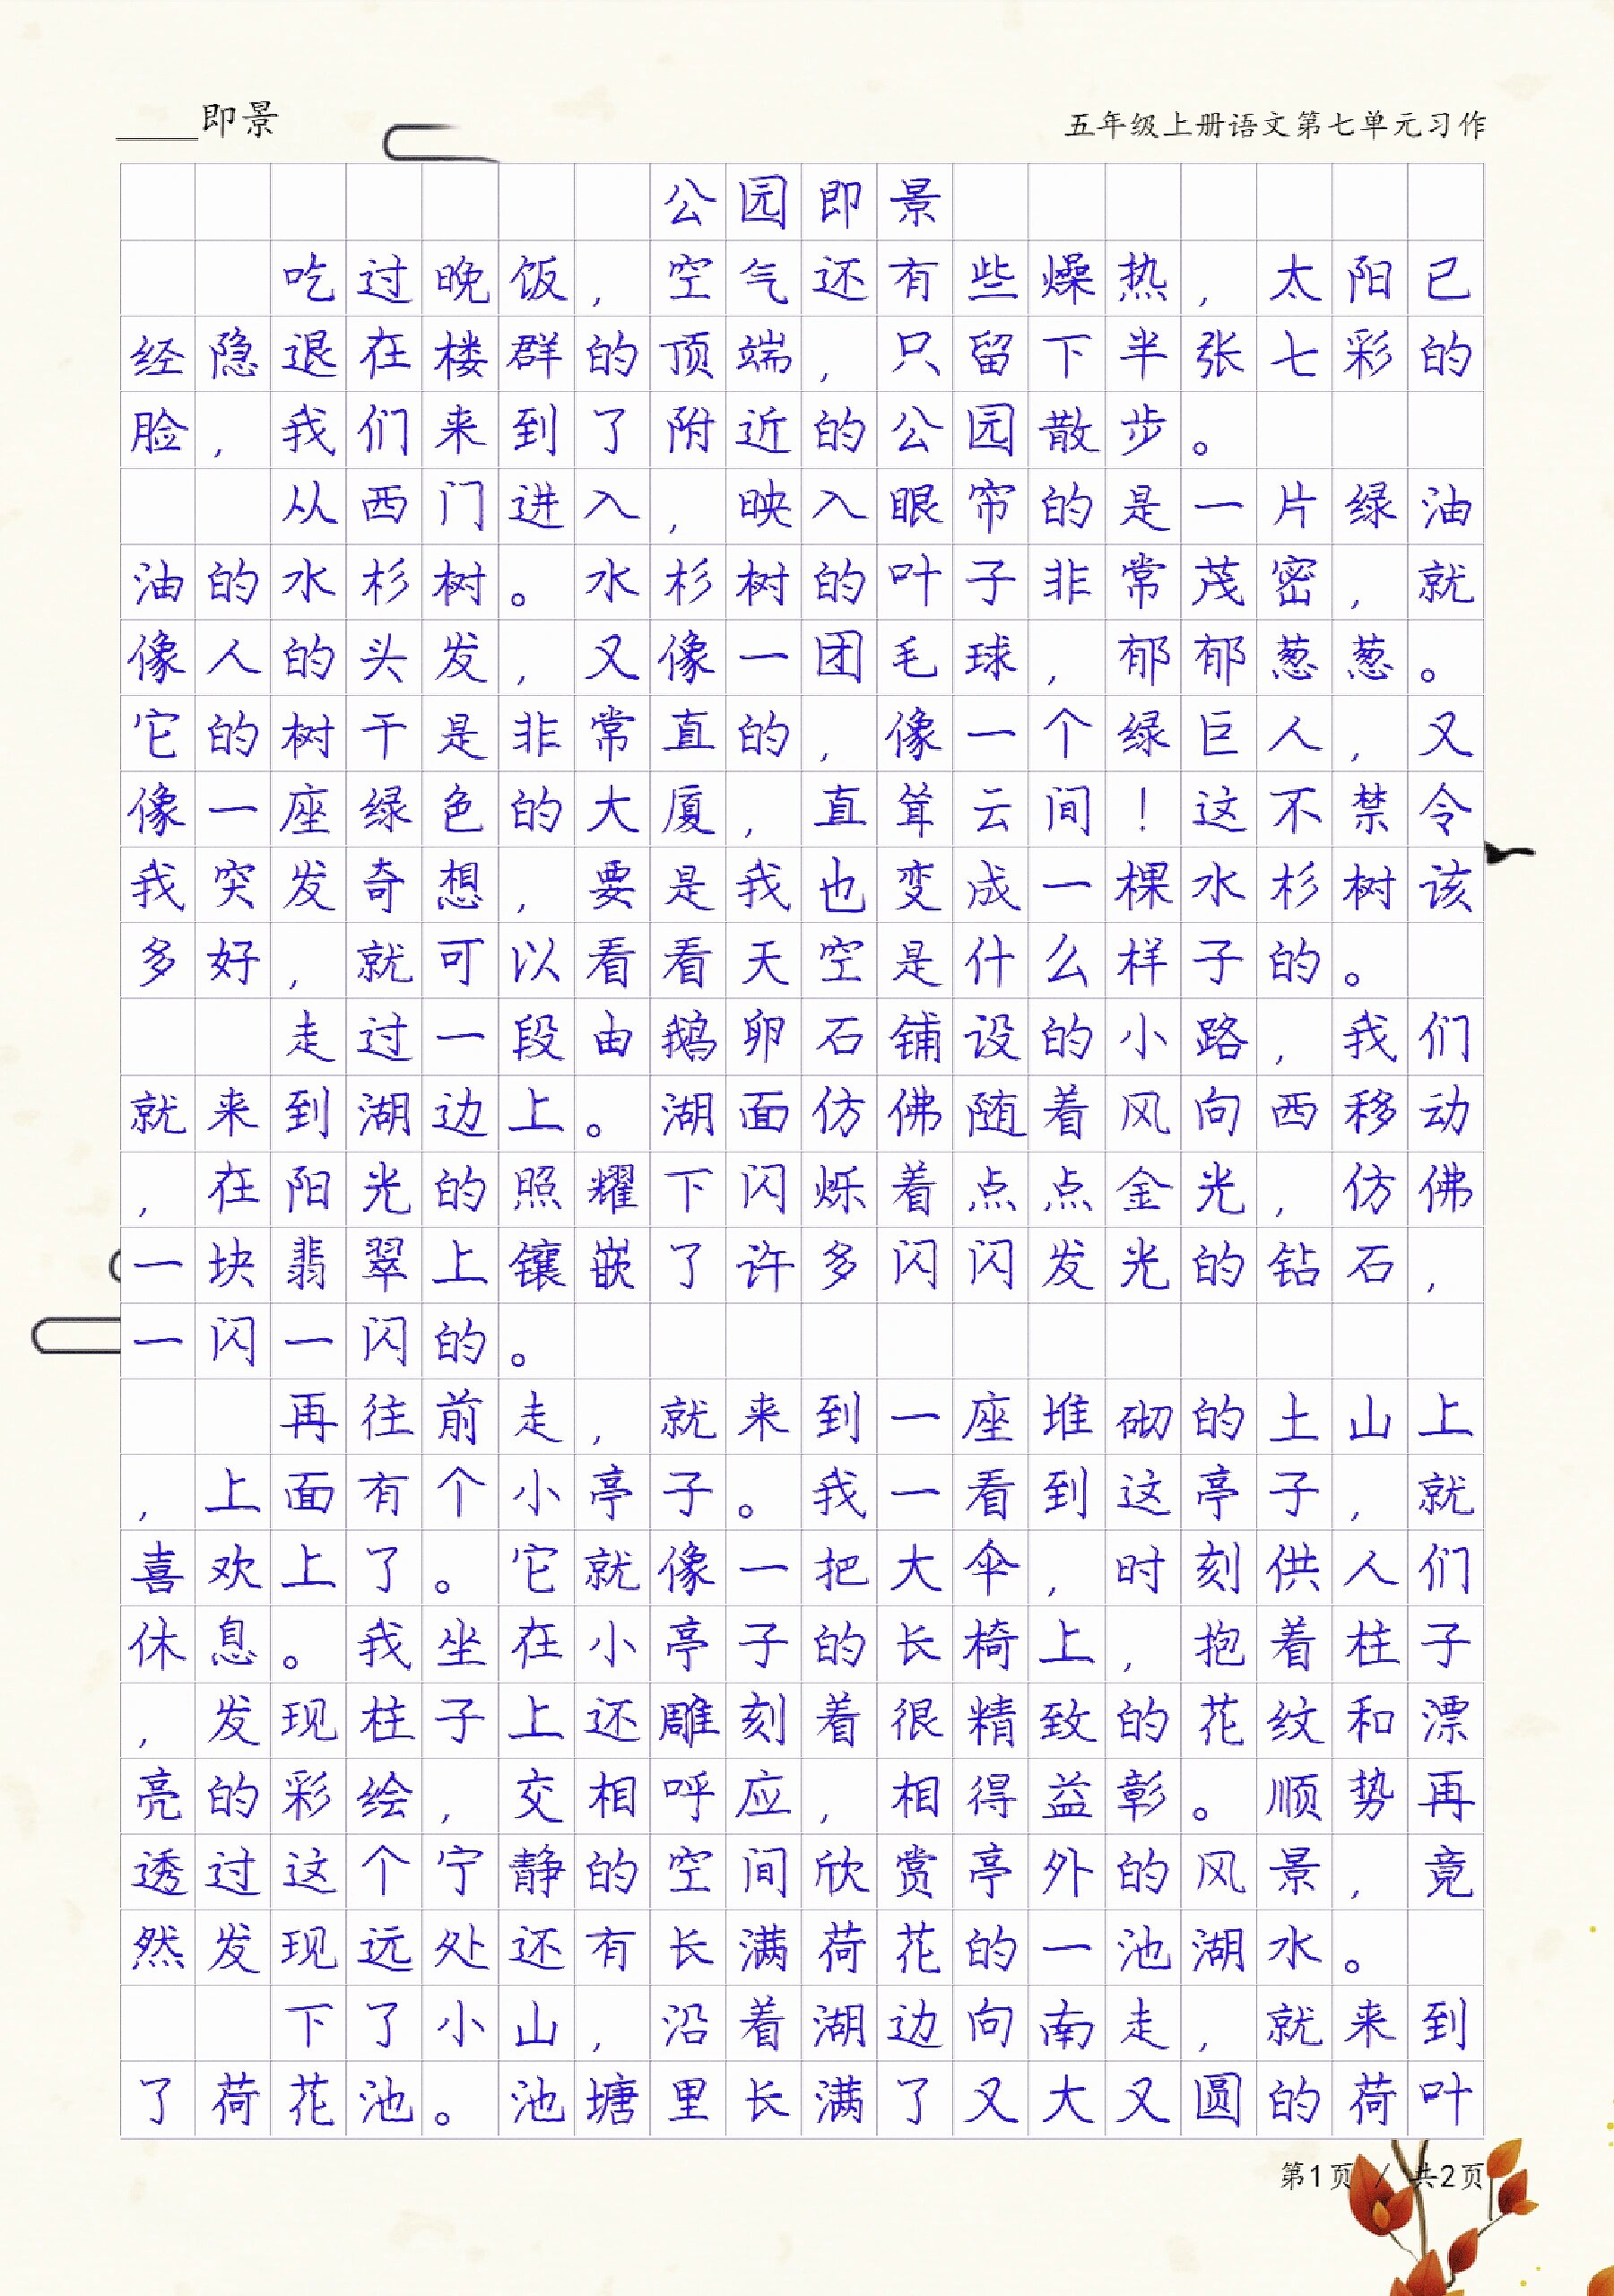 ____即景
五年级上册语文第七单元习作
公园即景
吃过晚饭，空气还有些燥热，太阳已
经隐退在楼群的顶端，只留下半张七彩的
脸，我们来到了附近的公园散步。
从西门进入，映入眼帘的是一片绿油
油的水杉树。水杉树的叶子非常茂密，就
像人的头发，又像一团毛球，郁郁葱葱。
它的树干是非常直的，像一个绿巨人，又
像一座绿色的大厦，直耸云间！这不禁令
我突发奇想，要是我也变成一棵水杉树该
多好，就可以看看天空是什么样子的。
走过一段由鹅卵石铺设的小路，我们
就来到湖边上。湖面仿佛随着风向西移动
，在阳光的照耀下闪烁着点点金光，仿佛
一块翡翠上镶嵌了许多闪闪发光的钻石，
一闪一闪的。
再往前走，就来到一座堆砌的土山上
，上面有个小亭子。我一看到这亭子，就
喜欢上了。它就像一把大伞，时刻供人们
休息。我坐在小亭子的长椅上，抱着柱子
，发现柱子上还雕刻着很精致的花纹和漂
亮的彩绘，交相呼应，相得益彰。顺势再
透过这个宁静的空间欣赏亭外的风景，竟
然发现远处还有长满荷花的一池湖水。
下了小山，沿着湖边向南走，就来到
了荷花池。池塘里长满了又大又圆的荷叶
第1页 / 共2页